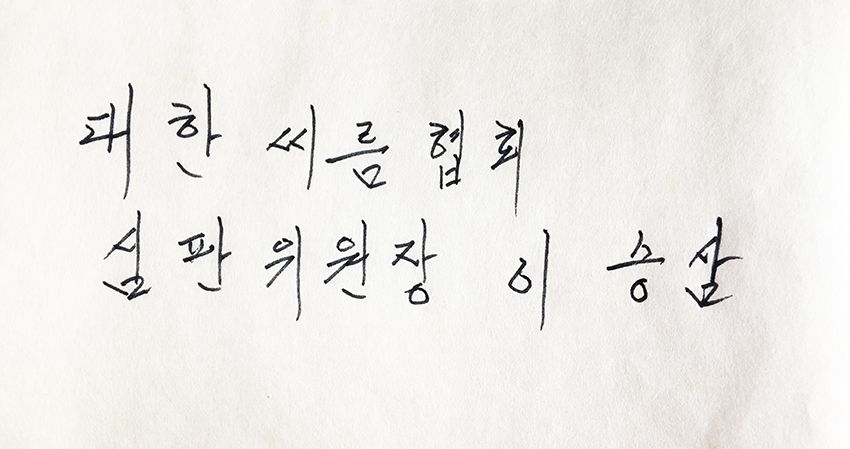 대한 씨름협회
심판위원장 이승삼